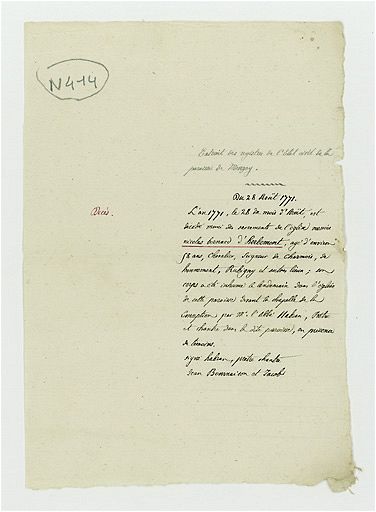 N4-14
Extrait des registres de l'Etat civil de la
paroisse de
Du 28 Août 1771.
Décès.
L'an 1771, le 28 du mois d'Août, est
décédé muni des sacrements de l'église messire
nicolas bernard d'Herbemont, agé d'environ
ans, Chevalier, Seigneur de Charmois, de
Rubigny et autres lieux; son
corps a été inhumé le lendemain dans l'église
de cette paroisse devant la chapelle de la
Conception par Mr. l'Abbé Prêtre
et chantre dans la dite paroisse, en présence
de temoins.
signé prêtre chantre
Jean et Jacob